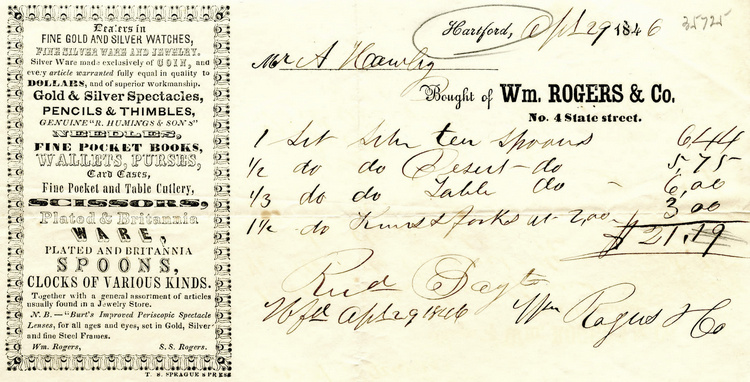 Dealers in
FINE GOLD AND SILVER WATCHES,
FINE SILVER WARE AND JEWELRY.
Silver Ware made exclusively of COIN, and
every article warranted fully equal in quality to
DOLLARS, and of superior workmanship.
Gold & Silver Spectacles,
PENCILS & THIMBLES,
GENUINE "R. HUMINGS & SON'S"
NEEDLES,
FINE POCKET BOOKS,
WALLETS, PURSES,
Card Cases,
Fine Pocket and Table Cutlery,
SCISSORS,
Plated & Britannia
WARE,
PLATED AND BRITANNIA
SPOONS,
CLOCKS OF VARIOUS KINDS.
Together with a general assortment of articles
usually found in a Jewelry Store.
N. B.—"Burt's Improved Periscopic Spectacle
Lenses, for all ages and eyes, set in Gold, Silver
and fine Steel Frames.
Wm. Rogers, S. S. Rogers.
T. S. SPRAGUE'S PRESS
35725
Hartford, Apl 29 1846
Mr A Hawley
Bought of Wm. ROGERS & Co.
No. 4 State street.
1 Set Silv tea Spoons 6,44
1/2 do do Desert do 5,75
1/3 do do Table do - 6,00
1 1/2 do Knivs & forks at 2,00 - 3 00
$ 21,19
Recd Payt
Htfd Apl 29 1846 Wm Rogers & Co